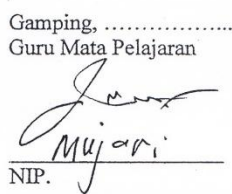 Gamping, ..................
Guru Mata Pelajaran
Mujari
NIP.